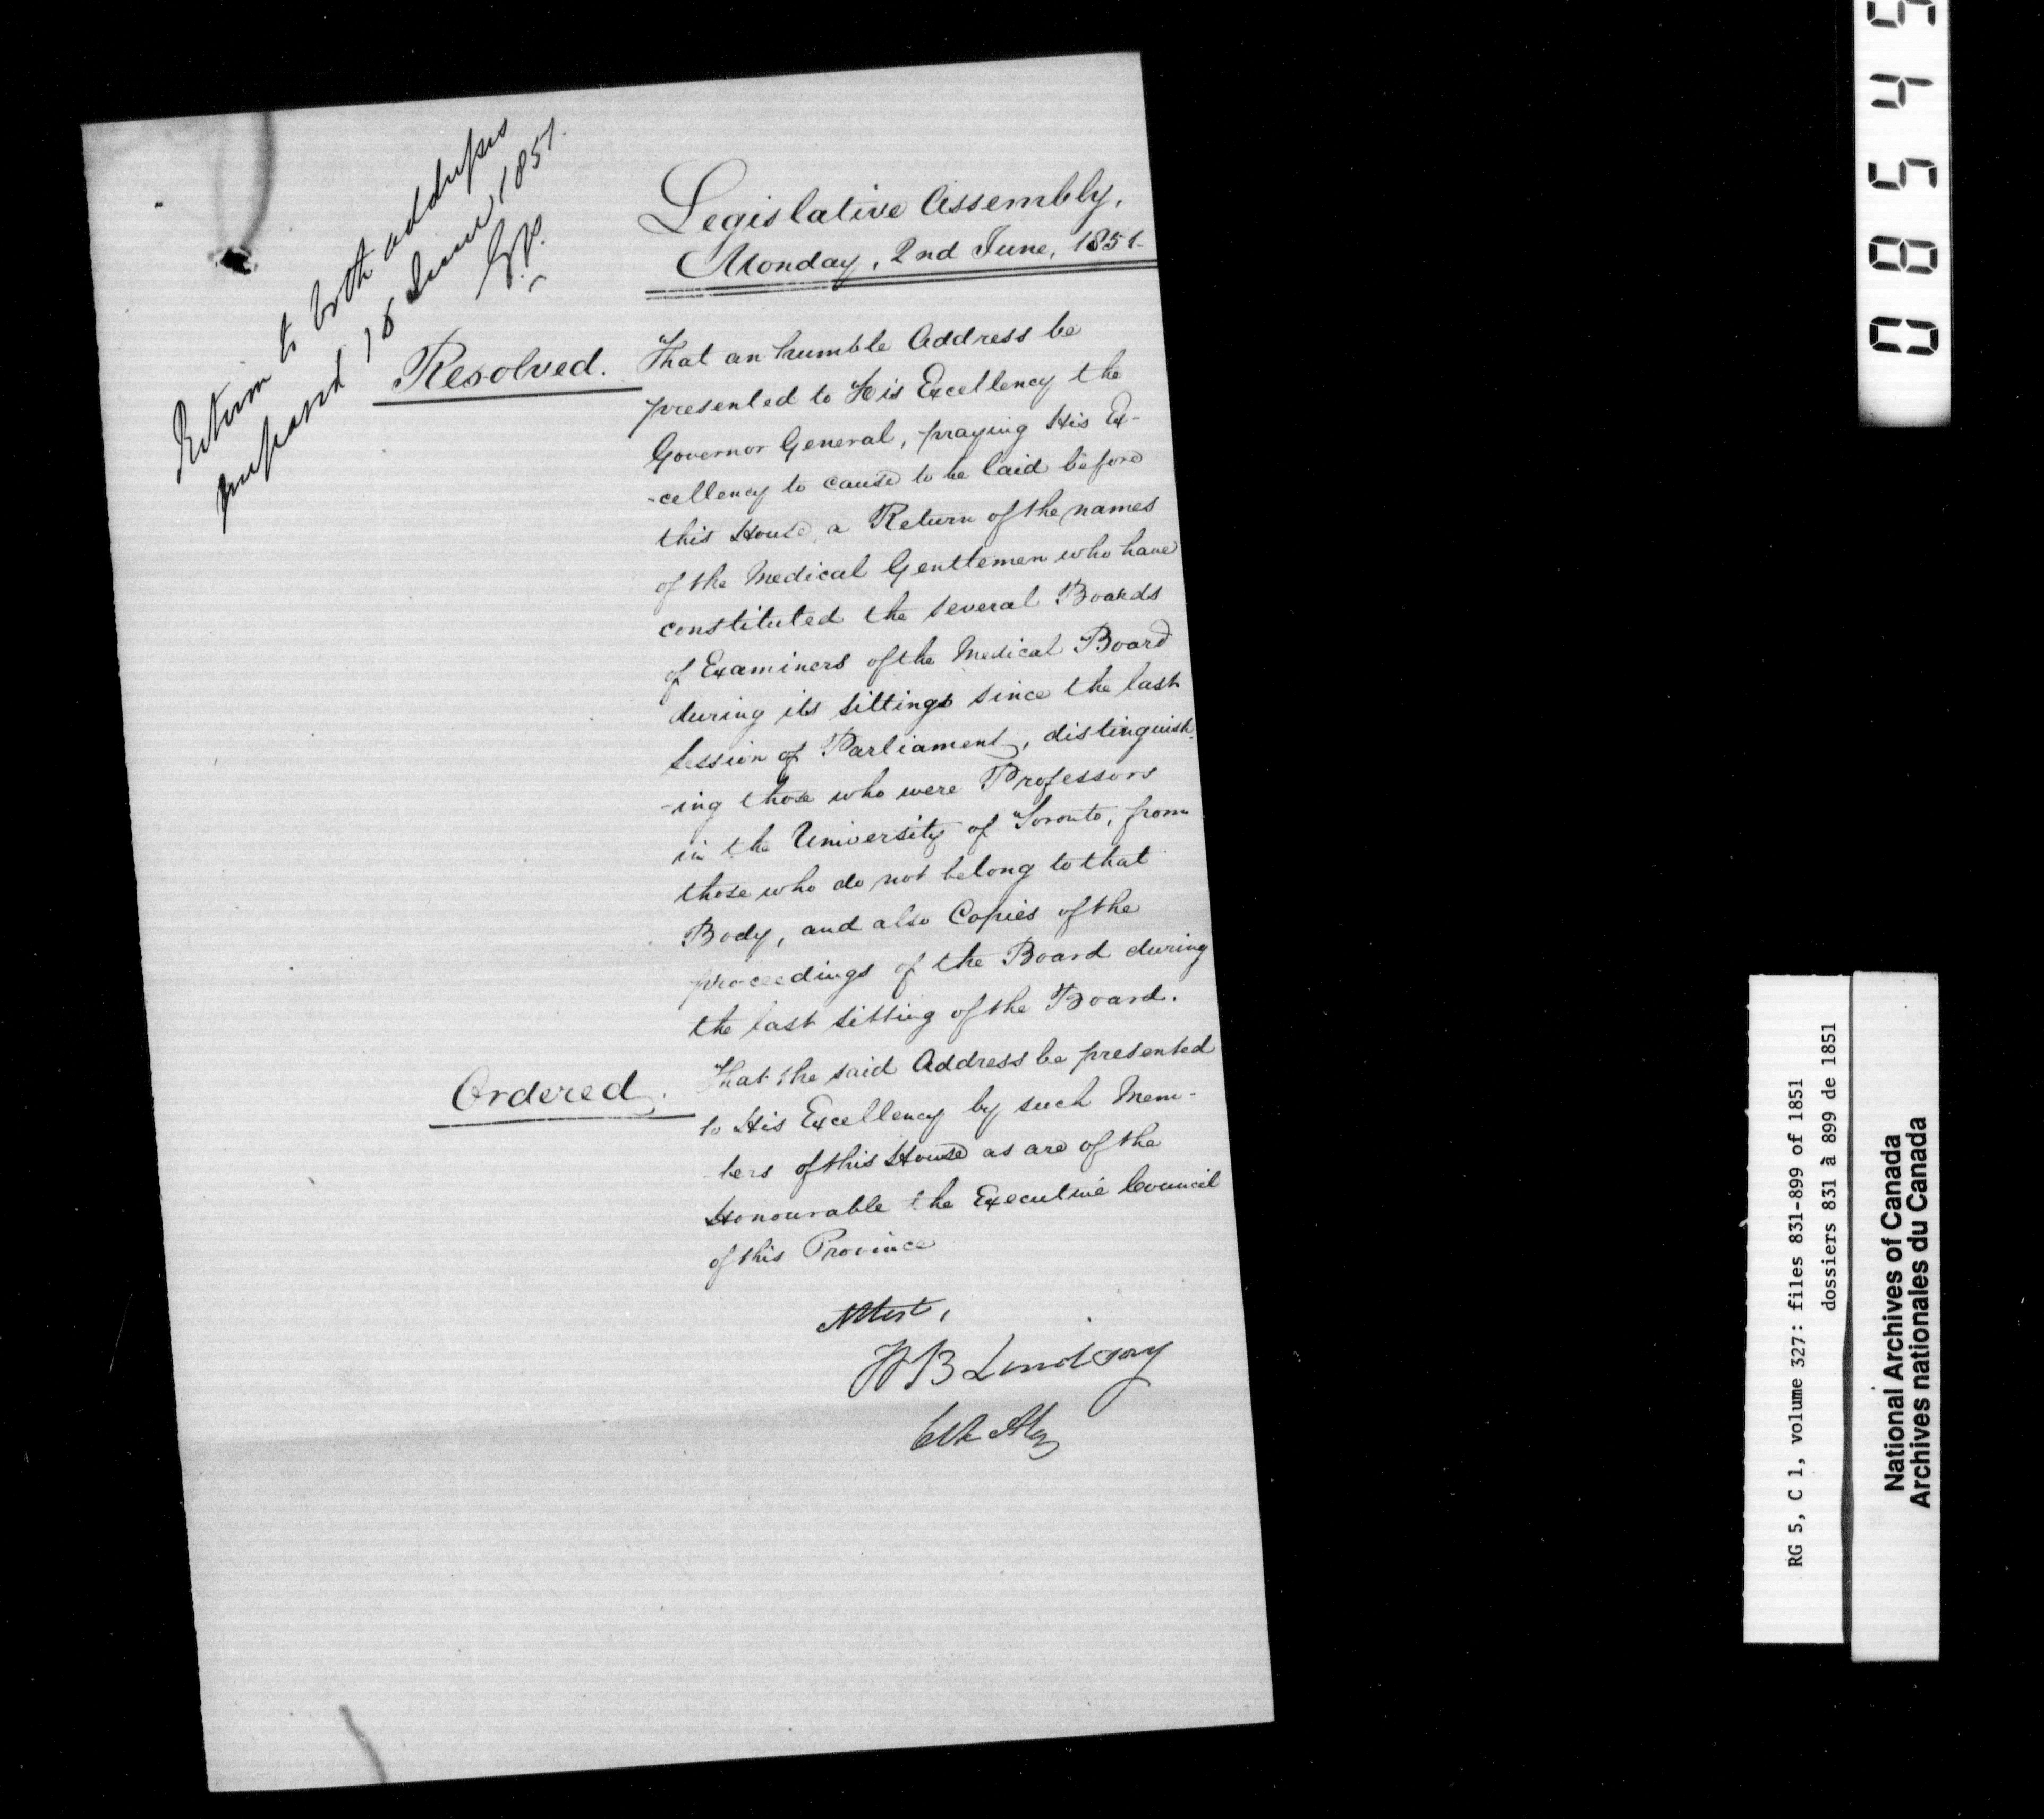 Return to both addresses
prepared 16 June 1851.
Legislative Assembly,
Monday, 2nd June, 1851.
Resolved. That an humble Address be
presented to His Excellency the
Governor General, praying His Ex-
-cellency to cause to be laid before
this House, a Return of the names
of the Medical Gentlemen who have
constituted the several Boards
of Examiners of the Medical Board
during its sittings since the last
Session of Parliament, distinguish-
-ing those who were Professors
in the University of Toronto, from
those who do not belong to that
Body, and also Copies of the
proceedings of the Board during
the last sitting of the Board.
Ordered. That the said Address be presented
to His Excellency by such Mem-
bers of this House as are of the
Honourable the Executive Council
of this Province
Attest,
WB Lindsay
Clk Assy
RG 5, C 1, volume 327: files 831-899 of 1851
dossiers 831 à 899 de 1851
National Archives of Canada
Archives nationales du Canada